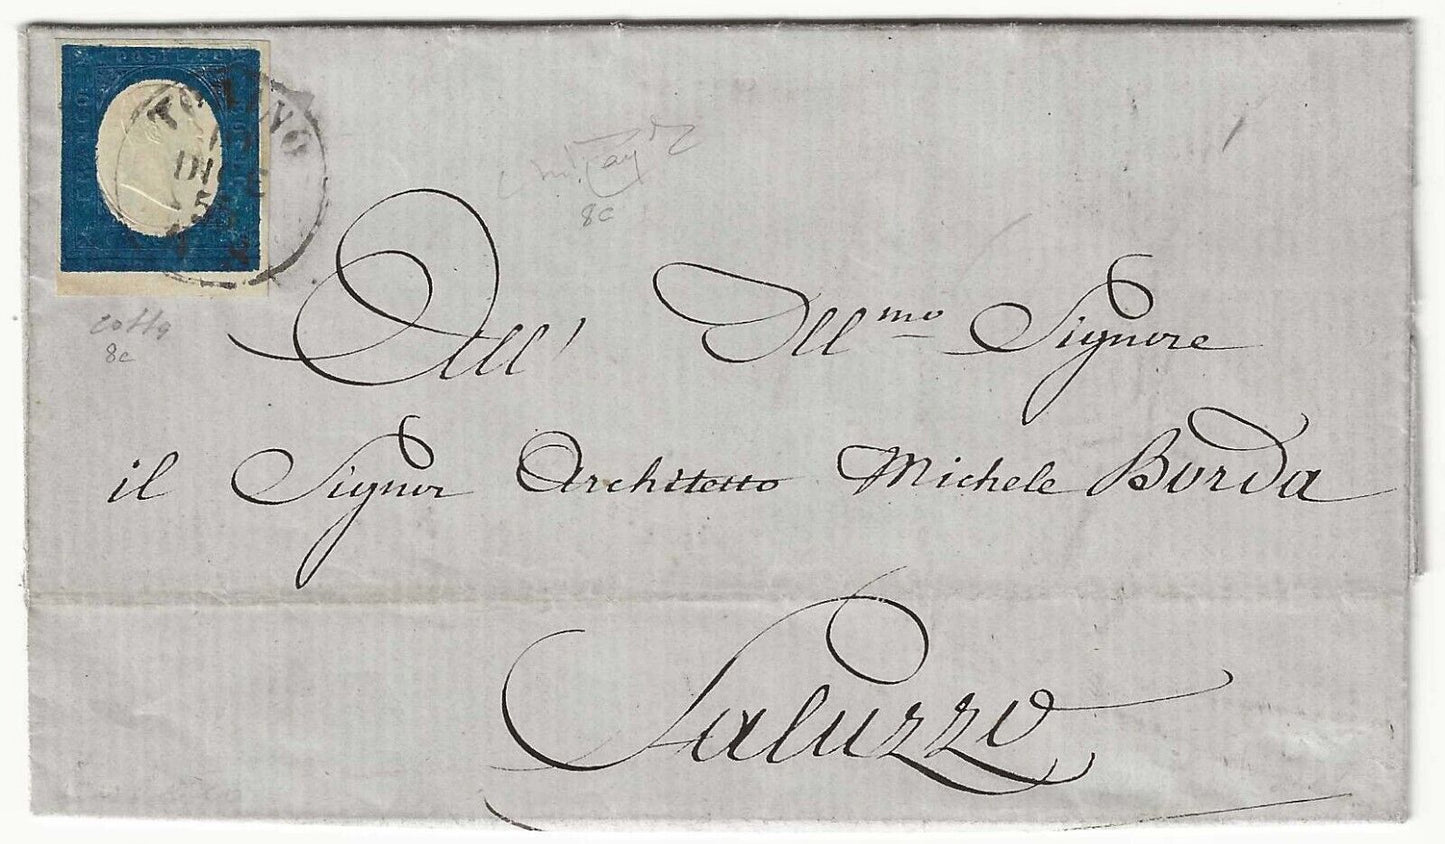 TORINO
DICE
55
8c
All' Ill.mo Signore
8c
il Signor Architetto Michele Borda
Saluzzo